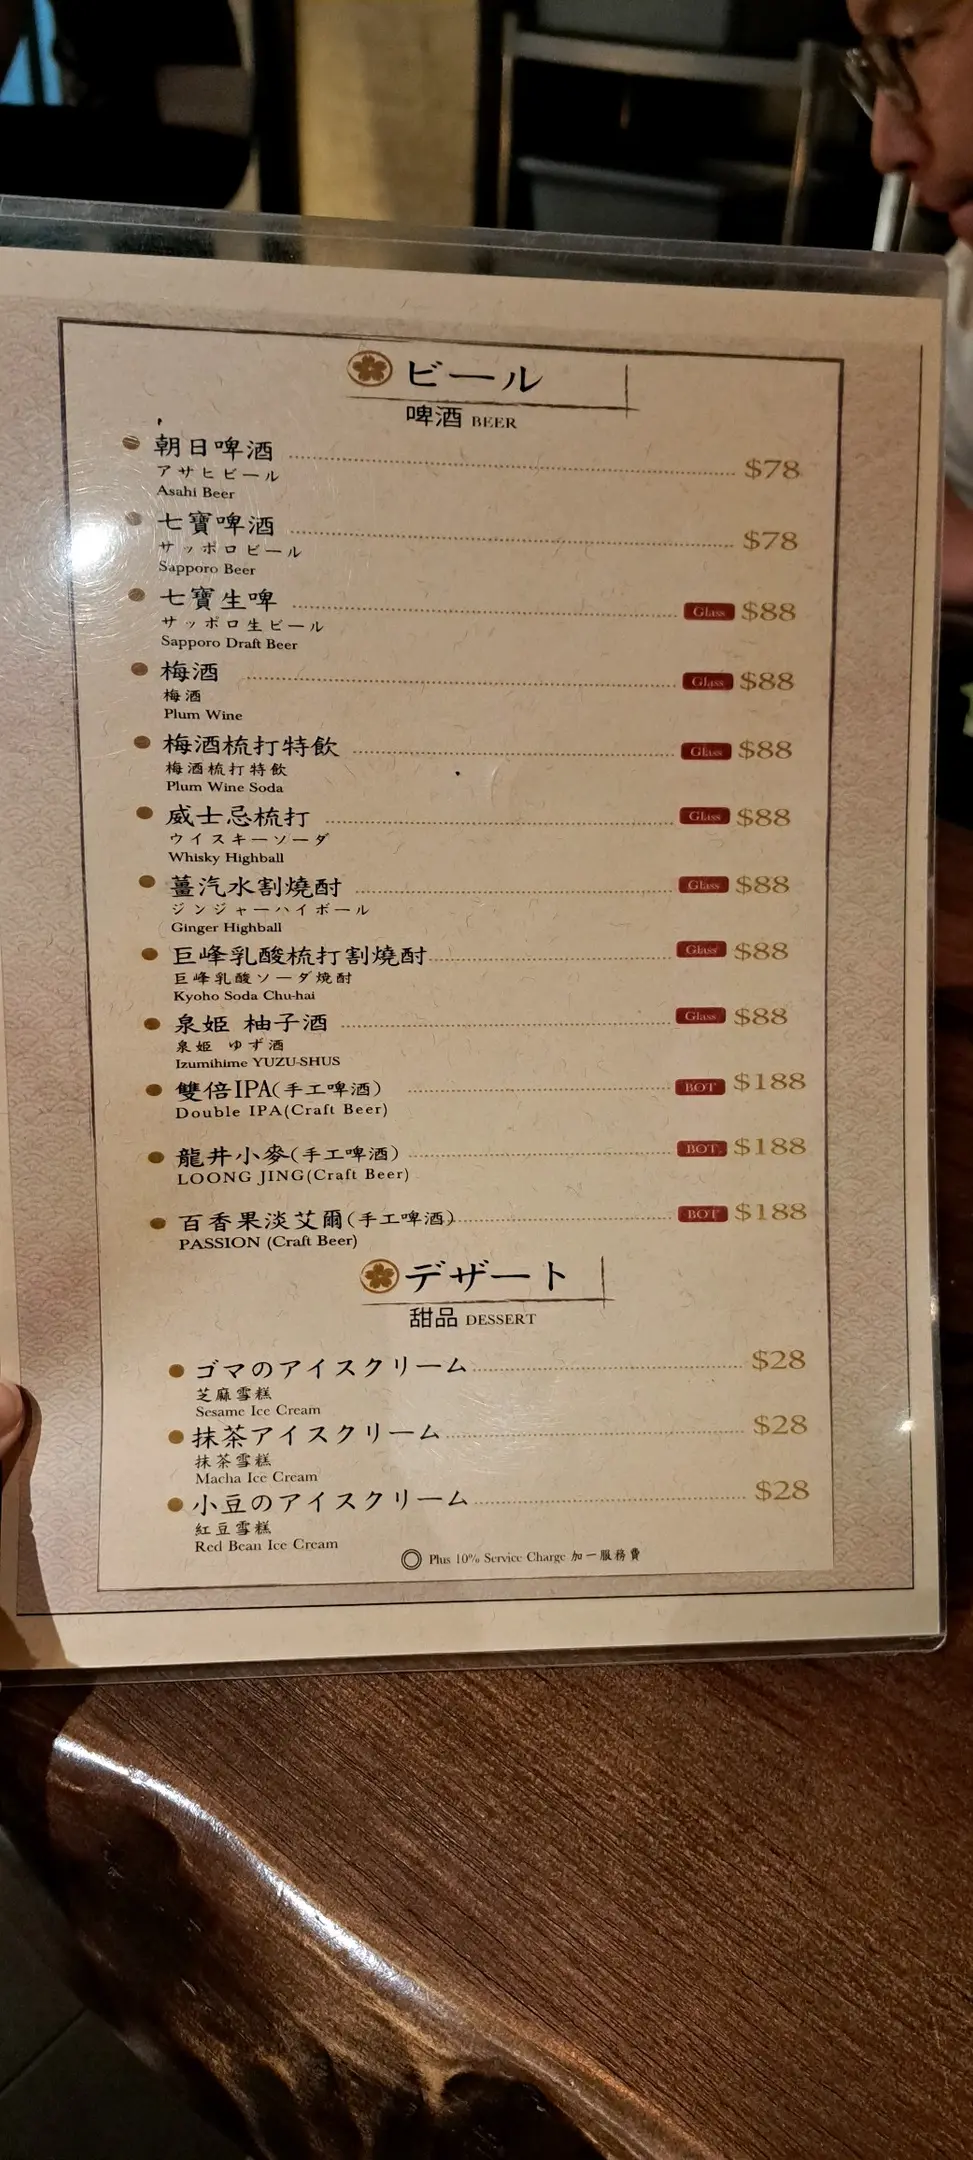 ビール
啤酒 BEER
朝日啤酒 $78
アサヒビール
Asahi Beer
七寶啤酒 $78
サッポロビール
Sapporo Beer
七寶生啤 Glass $88
サッポロ生ビール
Sapporo Draft Beer
梅酒 Glass $88
梅酒
Plum Wine
梅酒梳打特飲 Glass $88
梅酒梳打特飲
Plum Wine Soda
威士忌梳打 Glass $88
ウイスキーソーダ
Whisky Highball
薑汽水割燒酎 Glass $88
ジンジャーハイボール
Ginger Highball
巨峰乳酸梳打割燒酎 Glass $88
巨峰乳酸ソーダ焼酎
Kyoho Soda Chu-hai
泉姫 柚子酒 Glass $88
泉姫 ゆず酒
Izumihime YUZU-SHUS
雙倍IPA(手工啤酒) BOT $188
Double IPA(Craft Beer)
龍井小麥(手工啤酒) BOT $188
LOONG JING(Craft Beer)
百香果淡艾爾(手工啤酒) BOT $188
PASSION (Craft Beer)
デザート
甜品 DESSERT
ゴマのアイスクリーム $28
芝麻雪糕
Sesame Ice Cream
抹茶アイスクリーム $28
抹茶雪糕
Macha Ice Cream
小豆のアイスクリーム $28
紅豆雪糕
Red Bean Ice Cream
Plus 10% Service Charge 加一服務費